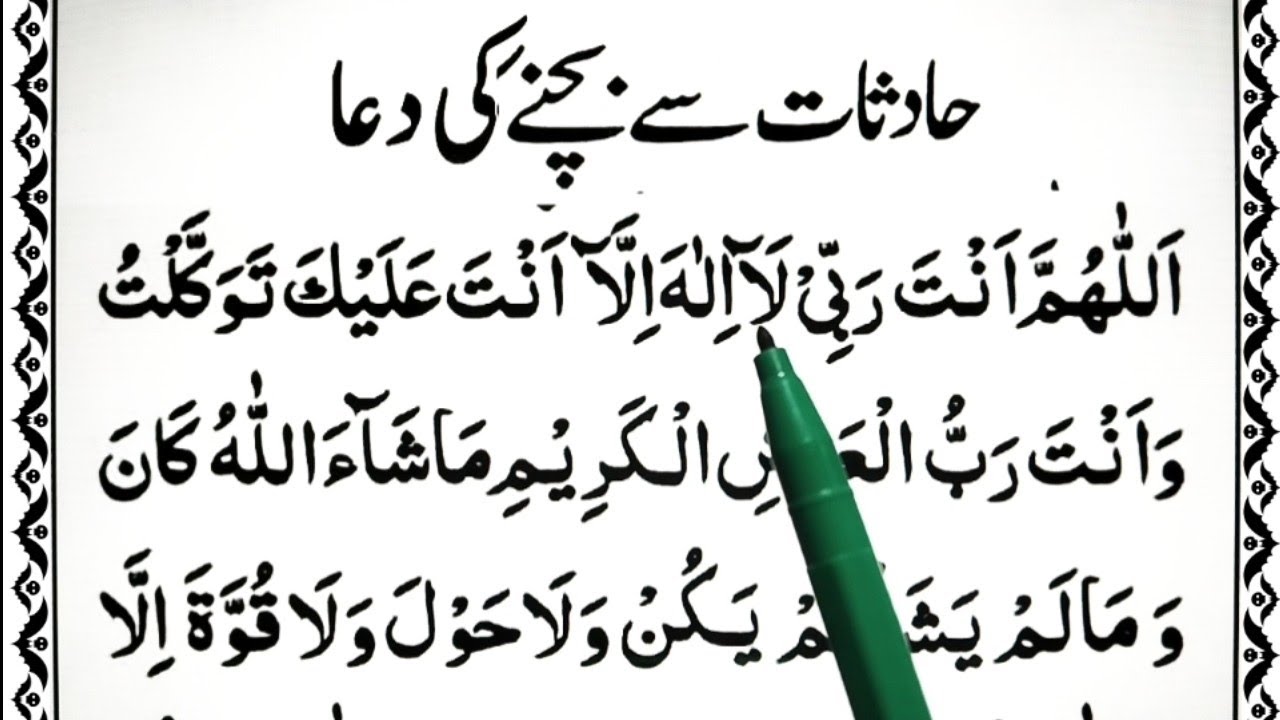 حادثات سے بچنے کی دعا
اَللّٰهُمَّ اَنْتَ رَبِّیْ لَآ اِلٰهَ اِلَّآ اَنْتَ عَلَیْكَ تَوَكَّلْتُ
وَاَنْتَ رَبُّ الْكَرِیْمِ مَاشَآءَ اللّٰهُ كَانَ
وَمَالَمْ یَكُنْ وَلَاحَوْلَ وَلَا قُوَّةَ اِلَّا